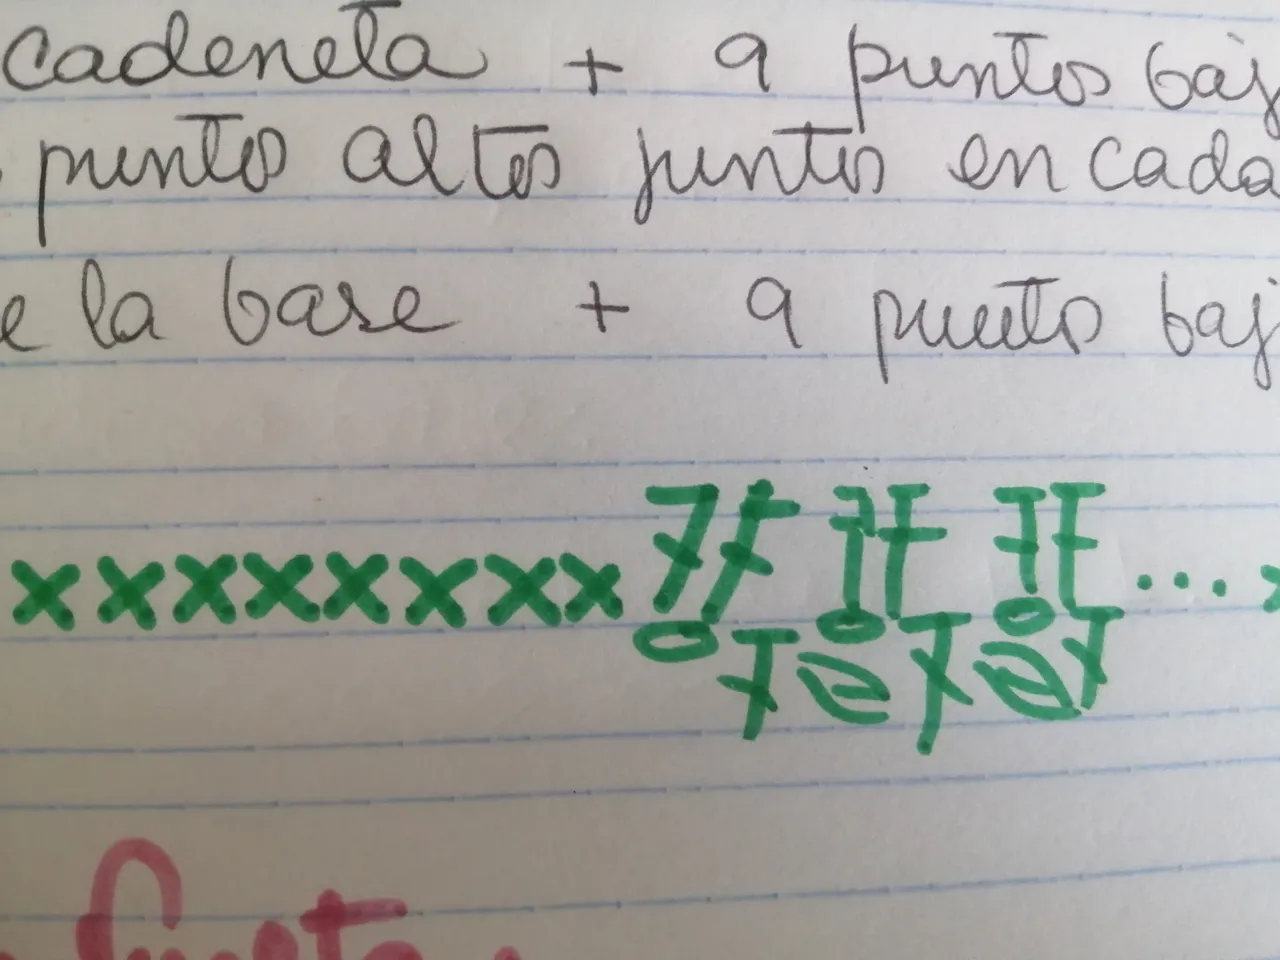 cadeneta + 9 puntos baj
puntos altos juntos en cada
e la base + 9 puntos baj
xxxxxxxx